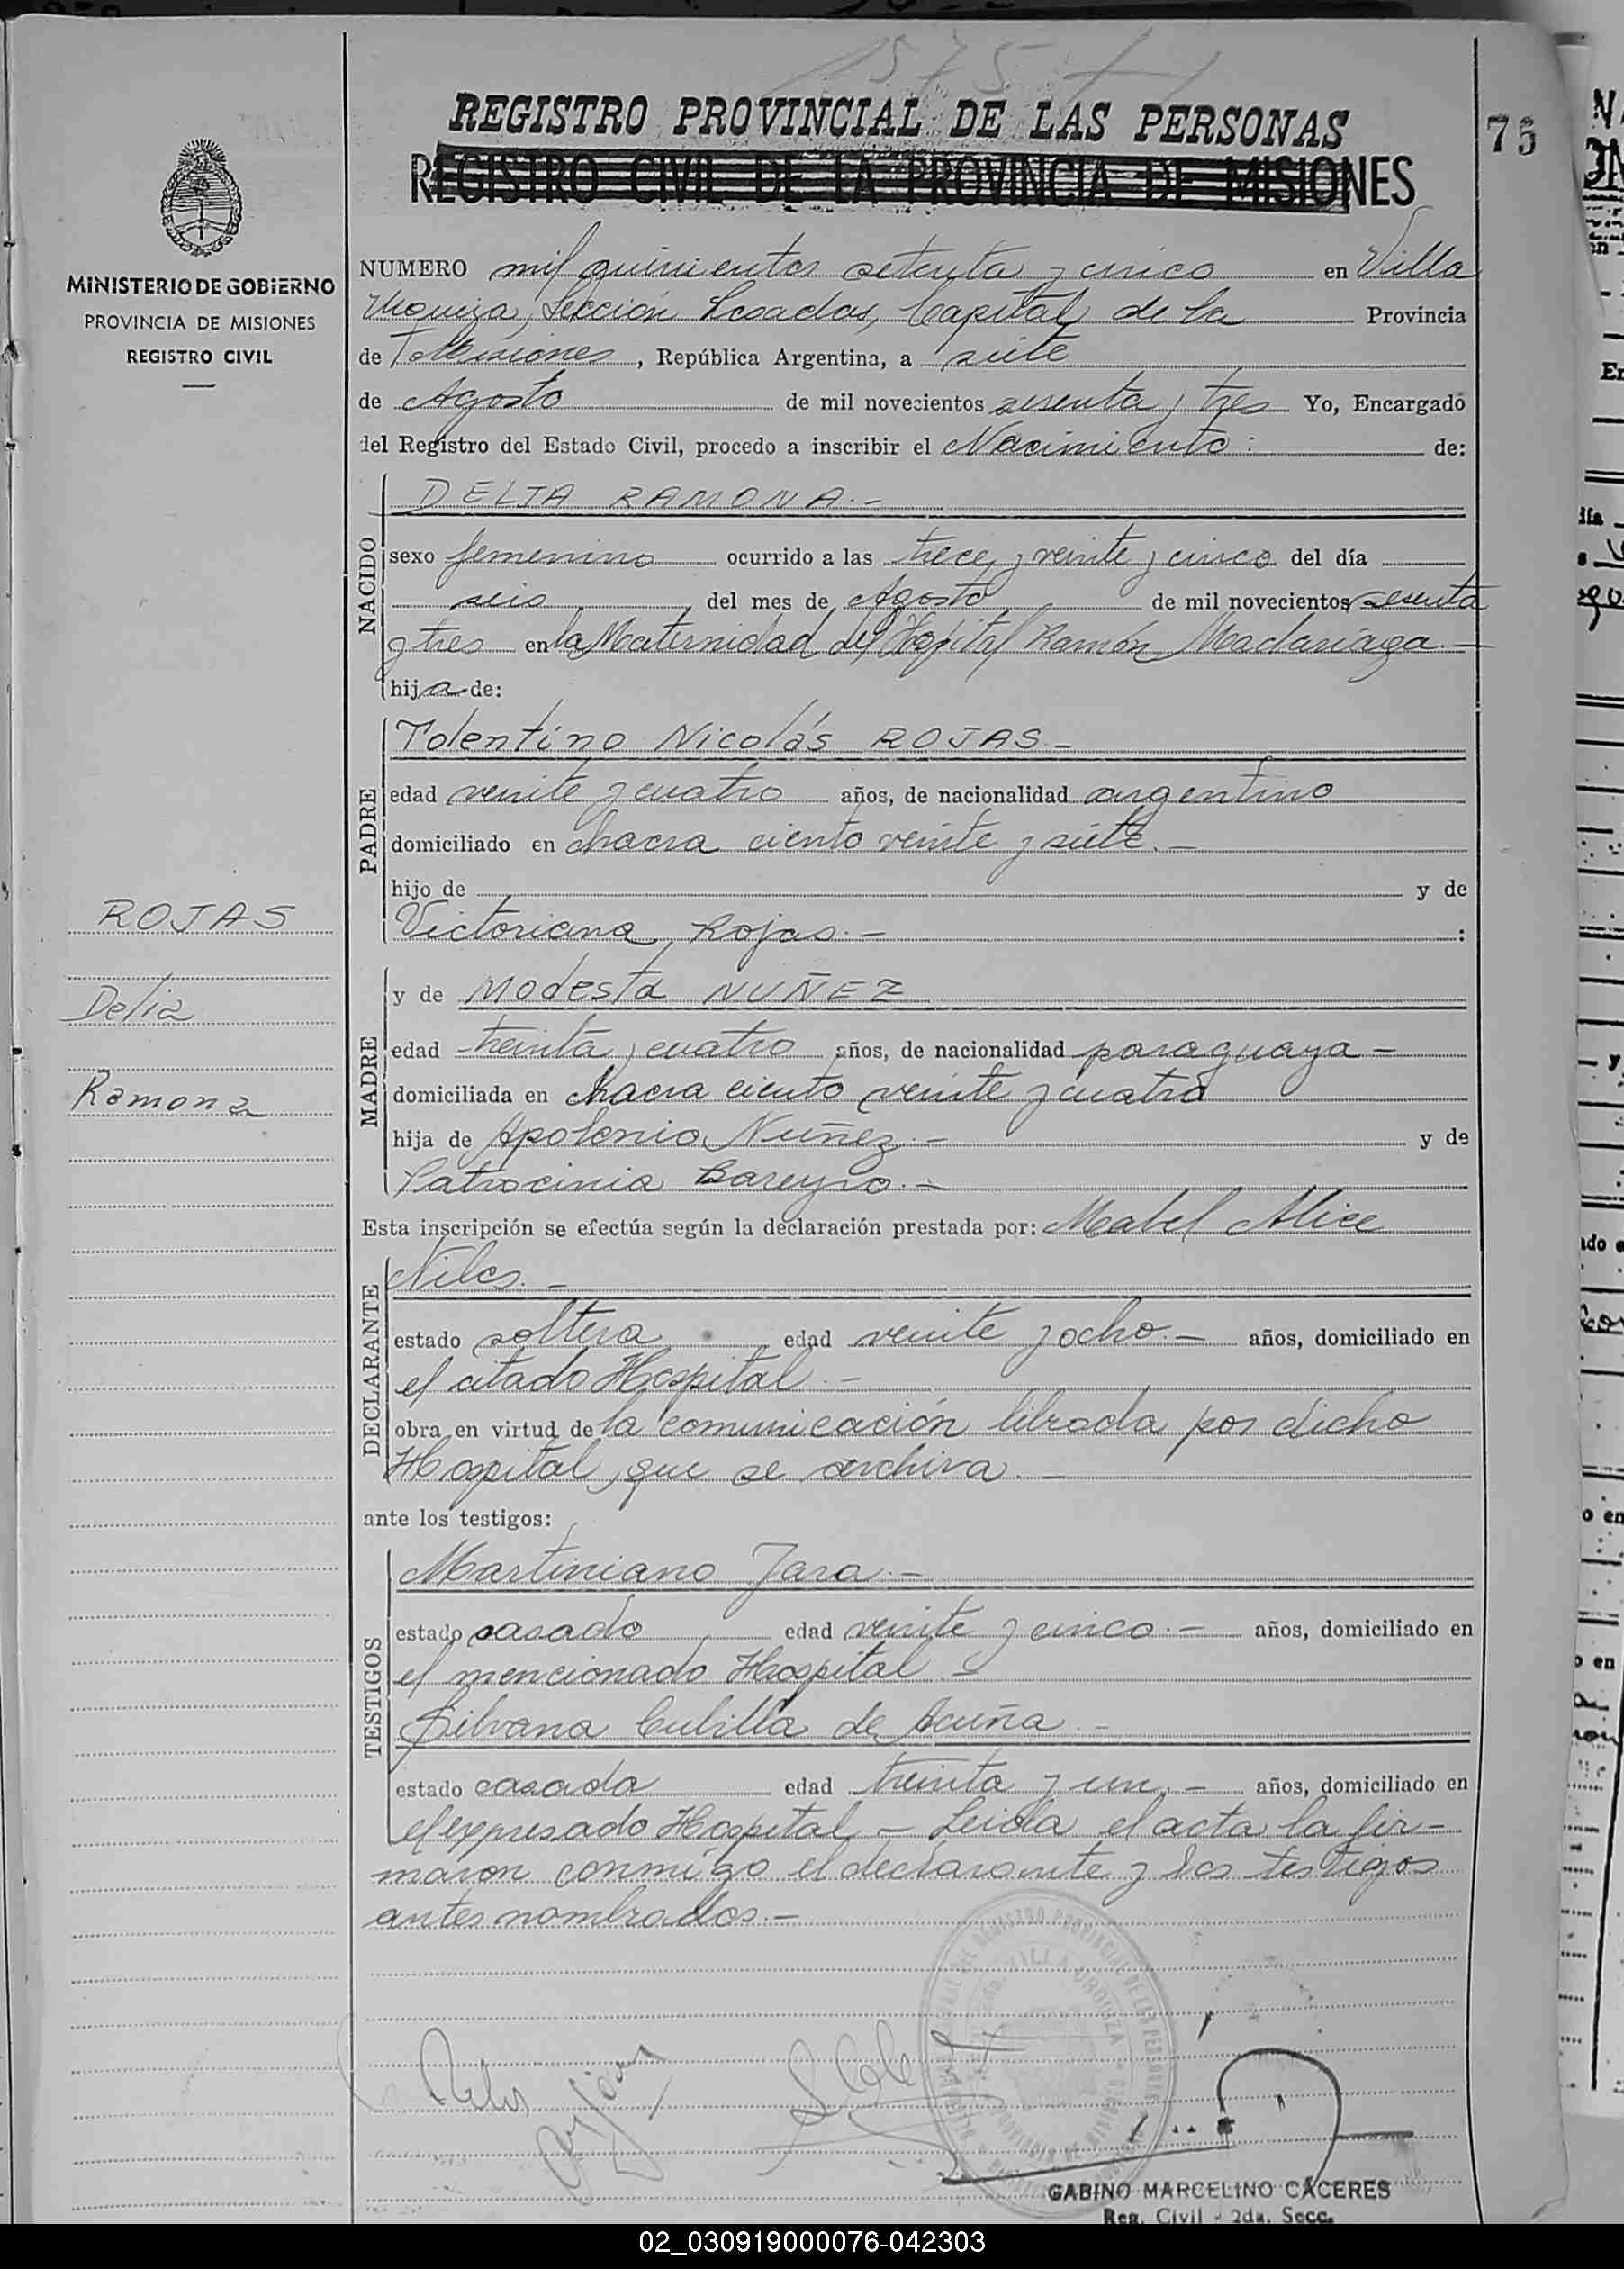 1575
REGISTRO PROVINCIAL DE LAS PERSONAS
75
REGISTRO CIVIL DE LA PROVINCIA DE MISIONES
MINISTERIO DE GOBIERNO
PROVINCIA DE MISIONES
REGISTRO CIVIL
NUMERO mil quinientos setenta y cinco en Villa
Urquiza, Sección Posadas, Capital de la Provincia
de Misiones, República Argentina, a siete
de Agosto de mil novecientos sesenta y tres Yo, Encargado
del Registro del Estado Civil, procedo a inscribir el Nacimiento: de:
NACIDO
DELIA RAMONA.-
sexo femenino ocurrido a las trece y veinte y cinco del día
seis del mes de Agosto de mil novecientos sesenta
y tres en la Maternidad del Hospital Ramón Madariaga.-
hija de:
PADRE
Tolentino Nicolás ROJAS.-
edad veinte y cuatro años, de nacionalidad argentino
domiciliado en chacra ciento veinte y siete.-
hijo de y de
Victoriana Rojas.- :
MADRE
y de Modesta NUÑEZ
edad treinta y cuatro años, de nacionalidad paraguaya -
domiciliada en chacra ciento veinte y cuatro
hija de Apolonio Nuñez.- y de
Patrocinia Bareyro.-
ROJAS
Delia
Ramona
Esta inscripción se efectúa según la declaración prestada por: Mabel Alice
DECLARANTE
Niles.-
estado soltera edad veinte y ocho.- años, domiciliado en
el citado Hospital.-
obra en virtud de la comunicación librada por dicho
Hospital, que se archiva.-
ante los testigos:
TESTIGOS
Martiniano Jara.-
estado casado edad veinte y cinco.- años, domiciliado en
el mencionado Hospital.-
Silvana Cubilla de Acuña.-
estado casada edad treinta y un.- años, domiciliado en
el expresado Hospital.- Leida el acta la fir-
maron conmigo el declarante y los testigos
antes nombrados.-
VILLA URQUIZA
GABINO MARCELINO CACERES
Reg. Civil - 2da. Secc.
02_030919000076-042303